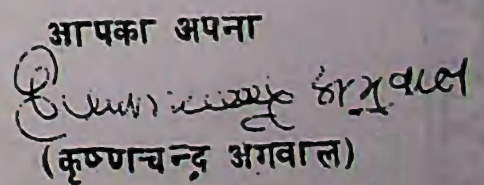 आपका अपना
अग्रवाल
(कृष्णचन्द्र अगवाल)